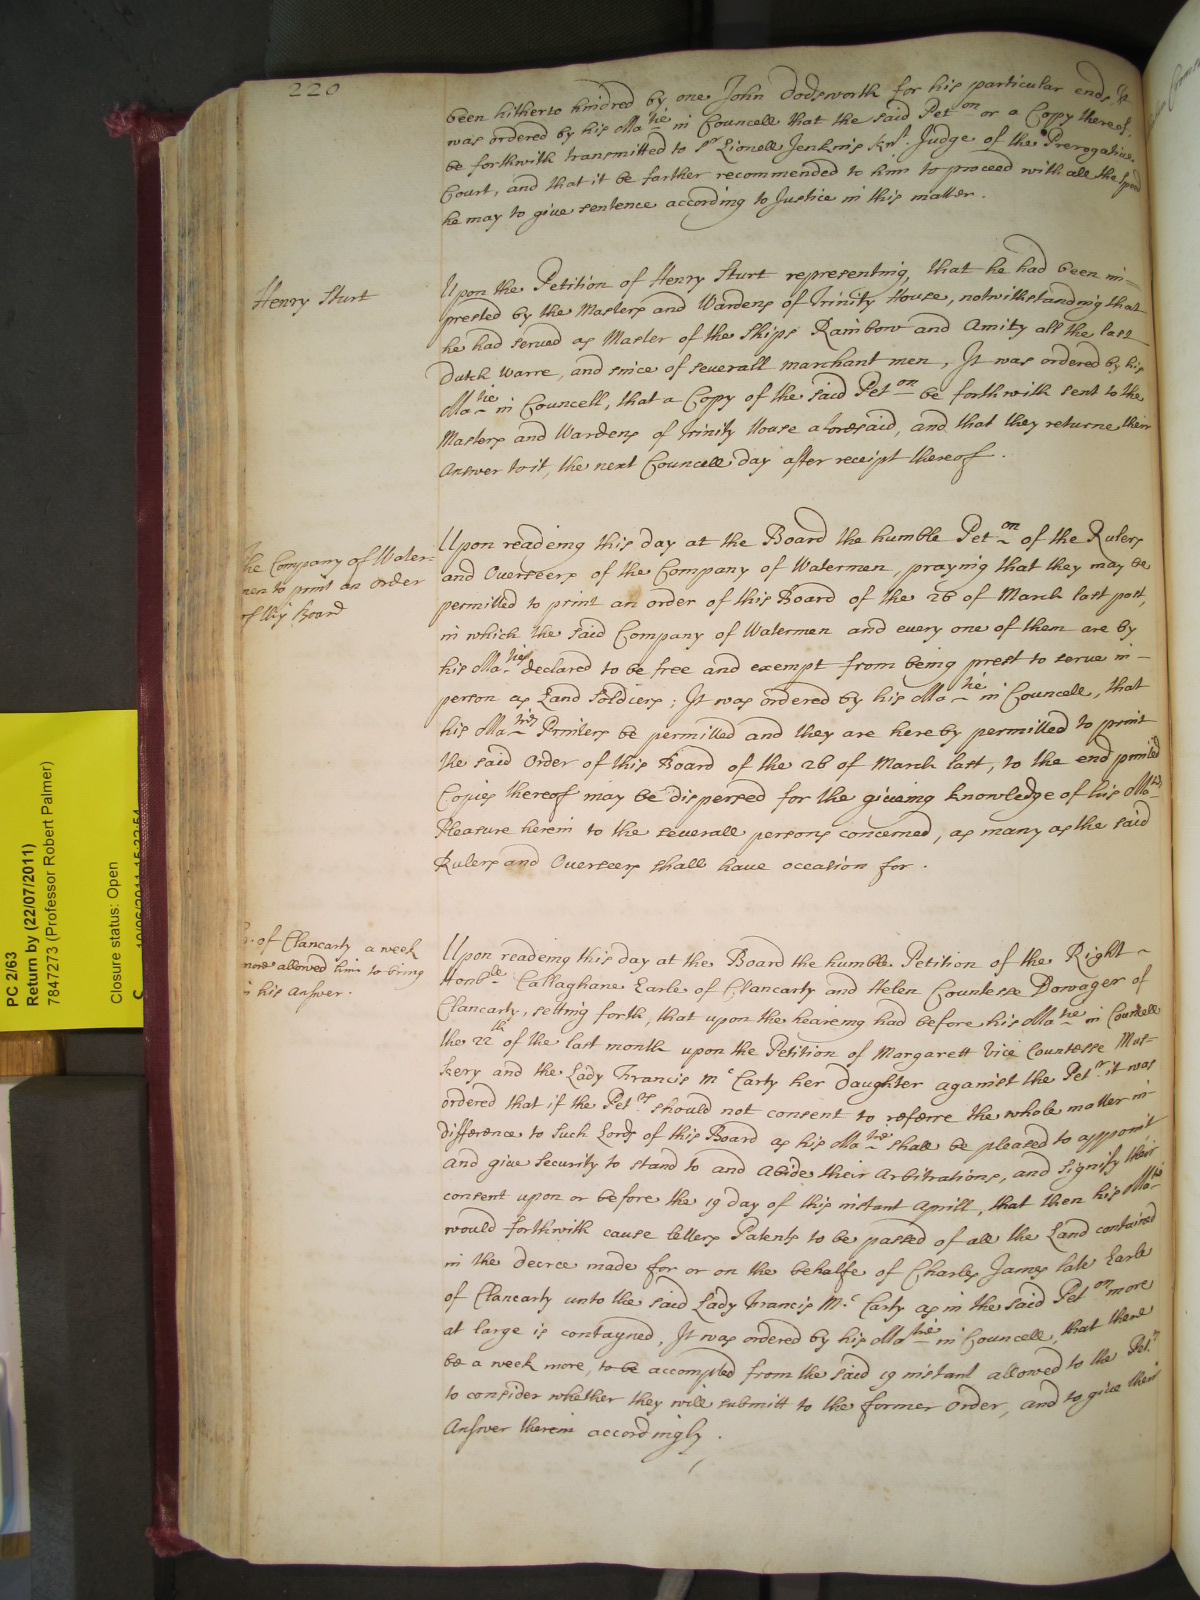 220
been hitherto hindred by one John Dodsworth for his particular ends, It
was ordered by his Ma:tie in Councell that the said Pet:on or a Copy thereof,
be forthwith transmitted to Sr Lionell Jenkins Knt. Judge of the Prerogative
Court, and that it be farther recommended to him to proceed with all the speed
he may to give sentence according to Justice in this matter.
Henry Sturt
Upon the Petition of Henry Sturt representing, that he had been im=
prested by the Masters and Wardens of Trinity House, notwithstanding that
he had served as Master of the Ships Rainbow and Amity all the last
Dutch Warre, and since of severall marchant men, It was ordered by his
Ma:tie in Councell, that a Copy of the said Pet:on be forthwith sent to the
Masters and Wardens of Trinity House aforesaid, and that they returne their
Answer to it, the next Councell day after receipt thereof.
The Company of Water=
men to print an Order
of this Board
Upon readeing this day at the Board the humble Pet:on of the Rulers
and Overseers of the Company of Watermen, praying that they may be
permitted to print an order of this Board of the 26 of March last past,
in which the said Company of Watermen and every one of them are by
his Ma:ties declared to be free and exempt from being prest to serve in
person as Land Soldiers; It was ordered by his Ma:tie in Councell, that
his Ma:ties Printers be permitted and they are hereby permitted to print
the said Order of this Board of the 26 of March last, to the end printed
Copies thereof may be dispersed for the giveing knowledge of his Ma:ties
Pleasure herein to the severall persons concerned, as many as the said
Rulers and Overseers shall have occasion for.
E. of Clancarty a week
more allowed him to bring
in his Answer.
Upon readeing this day at the Board the humble Petition of the Right
Honble Callaghane Earle of Clancarty and Helen Countesse Dowager of
Clancarty, setting forth, that upon the heareing had before his Ma:tie in Councell
the 22th of the last month upon the Petition of Margarett Vice Countesse Mus-
kery and the Lady Francis Mc Carty her Daughter against the Petr. it was
ordered that if the Petrs should not consent to referre the whole matter in
difference to such Lords of this Board as his Ma:tie shall be pleased to appoint
and give security to stand to and abide their Arbitrations, and signify their
consent upon or before the 19 day of this instant Aprill, that then his Ma:tie
would forthwith cause letters Patents to be passed of all the Land contained
in the decree made for or on the behalfe of Charles James late Earle
of Clancarty unto the said Lady Francis Mc Carty as in the said Pet:on more
at large is contayned, It was ordered by his Ma:tie in Councell, that there
be a week more, to be accompted from the said 19 instant allowed to the Petrs
to consider whether they will submitt to the former Order, and to give their
Answer therein accordingly.
PC 2/63
Return by (22/07/2011)
7847273 (Professor Robert Palmer)
Closure status: Open